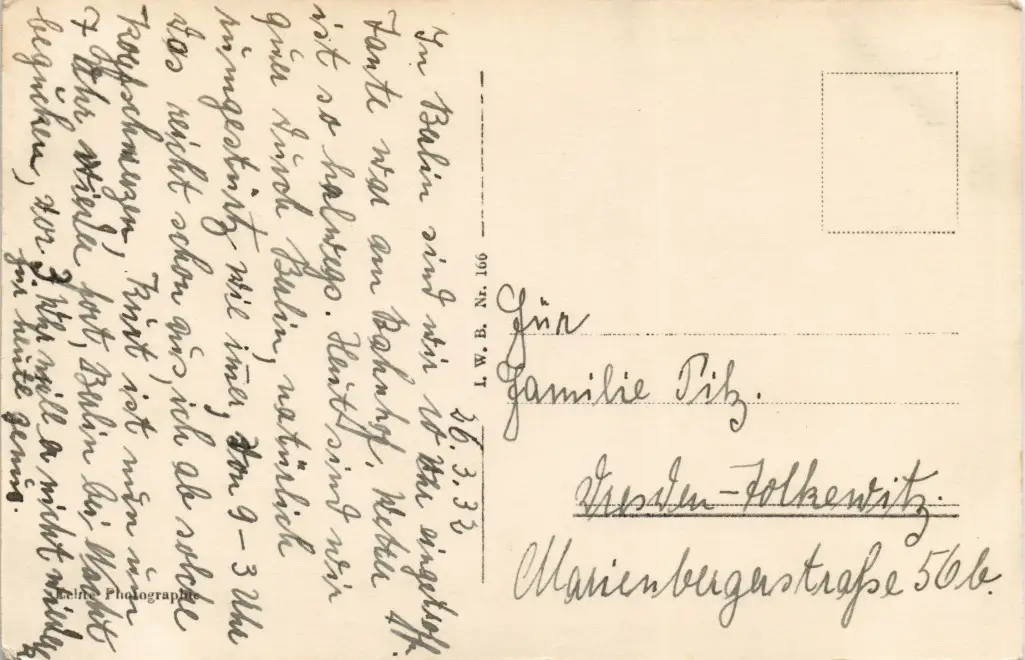 26.3.32
In Berlin sind wir 10 Uhr eingetroff.
Tante war am Bahnhof. Wetter
ist so halwegs. Heut sind wir
quer durch Berlin, natürlich
rumgestürtz wie imer, von 9-3 Uhr
das reicht schon aus, ich ab solche
Kopfschmerzen, Kurt ist nun um
7 Uhr wieder fort, Berlin bei Nacht
begucken, vor 3. Uhr will er nicht wieder
für heute genug.
Echte Photographie
I. W. B. Nr. 166
Für
Familie Pilz.
Dresden-Tolkewitz.
Marienbergerstraße 56b.